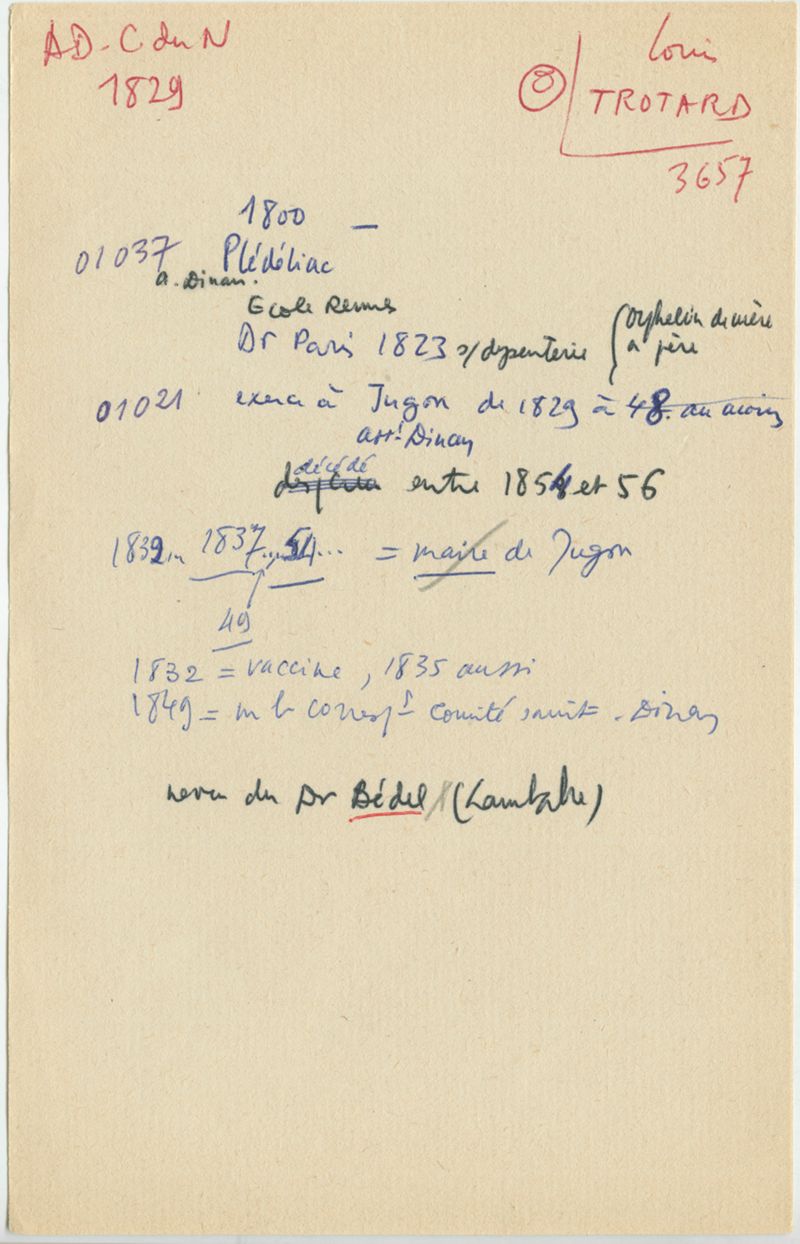 AD. C du N
1829
Louis
8 TROTARD
3657
1800 —
01037 Plédéliac
a. Dinan.
Ecole Rennes
Dr Paris 1823 s/dysenterie
orphelin de mère
à père
01021 exerce à Jugon de 1829 à 48. au moins
arrt Dinan
décédé
entre 1854 et 56
1832... 1837..., 54... = maire de Jugon
49
1832 = vaccine, 1835 aussi
1849 = mb corresp. comité sanit = . Dinan
neveu du Dr Bédel (Lamballe)